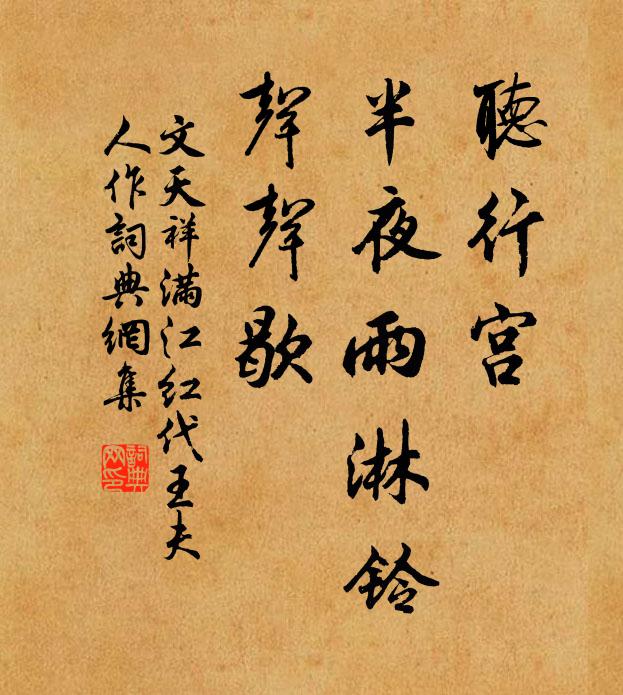 聽行宮
半夜雨淋鈴
聲聲歇
文天祥滿江红代王夫
人作詞典網集
詞典
网印